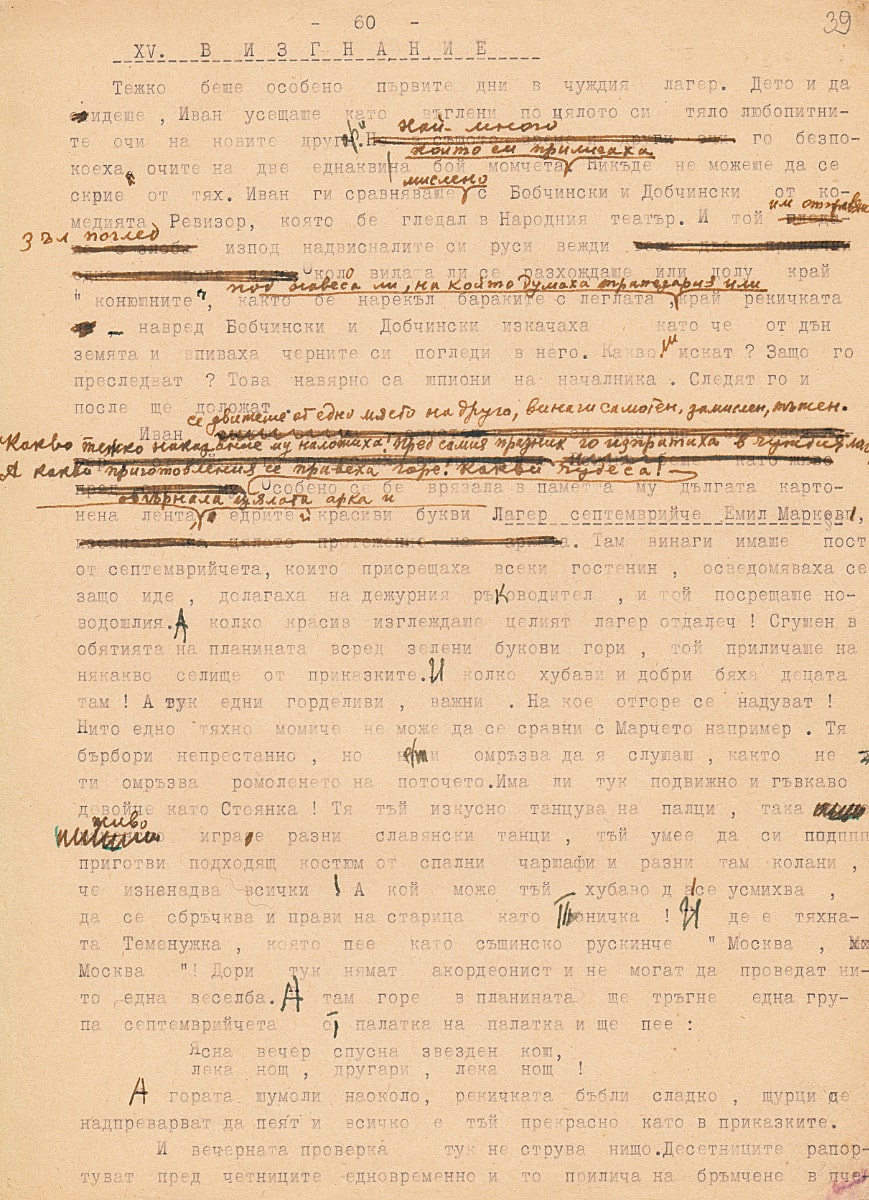 - 60 -
39
XV. В ИЗГНАНИЕ
Тежко беше особено първите дни в чуждия лагер. Дето и да
идеше, Иван усещаше като въглени по цялото си тяло любопитни-
най-много
те очи на новите другари. го безпо-
които си приличаха
коеха очите на две еднакви на бой момчета. Никъде не можеше да се
мислено
скрие от тях. Иван ги сравняваше с Бобчински и Добчински от ко-
им отправя
медията Ревизор, която бе гледал в Народния театър. И той
зъл поглед
изпод надвисналите си руси вежди
Около вилата ли се разхождаше или долу край
под навеса ли, на който думаха трапезария или
"конюшните", както бе нарекъл бараките с леглата край рекичката
- навред Бобчински и Добчински изкачаха като че от дън
земята и впиваха черните си погледи в него. Какво искат ? Защо го
преследват ? Това навярно са шпиони на началника . Следят го и
после ще доложат.
се движеше от едно място на друго, винаги самотен, замислен, тъжен.
Иван
Какво тежко наказание му наложиха! Пред самия празник го изпратиха в чуждия лаг
А какво приготовления се правеха горе! Какви чудеса! —
Особено се бе врязала в паметта му дългата карто-
обгърнала цялата арка и
нена лента с едрите й красиви букви Лагер септемврийче Емил Марков,
Там винаги имаше пост
от септемврийчета, които присрещаха всеки гостенин , осведомяваха се
защо иде , долагаха на дежурния ръководител , и той посрещаше но-
водошлия. А колко красив изглеждаше целият лагер отдалеч ! Сгушен в
обятията на планината всред зелени букови гори , той приличаше на
някакво селище от приказките. И колко хубави и добри бяха децата
там ! А тук едни горделиви , важни . На кое отгоре се надуват !
Нито едно тяхно момиче не може да се сравни с Марчето например . Тя
бърбори непрестанно , но не ти омръзва да я слушаш , както не
ти омръзва ромоленето на поточето.Има ли тук подвижно и гъвкаво
девойче като Стоянка ! Тя тъй изкусно танцува на палци , така
живо
играе разни славянски танци , тъй умее да си
приготви подходящ костюм от спални чаршафи и разни там колани ,
че изненадва всички ! А кой може тъй хубаво да се усмихва ,
да се сбръчква и прави на старица като Тоничка ! И де е тяхна-
та Теменужка , която пее като същинско рускинче " Москва ,
Москва "! Дори тук нямат акордеонист и не могат да проведат ни-
то една веселба. А там горе в планината ще тръгне една гру-
па септемврийчета от палатка на палатка и ще пее :
Ясна вечер спусна звезден кош,
лека нощ , другари , лека нощ !
А гората шумоли наоколо, рекичката бъбли сладко , щурци се
надпреварват да пеят и всичко е тъй прекрасно като в приказките.
И вечерната проверка тук не струва нищо.Десетниците рапор-
туват пред четниците едновременно и то прилича на бръмчене в пче-